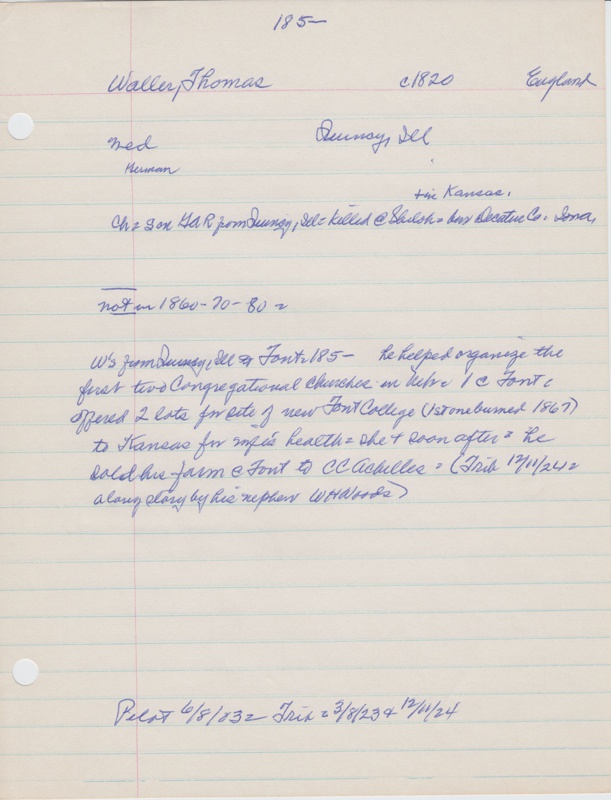 185-
Waller, Thomas c1820 England
med Quincy, Ill
Herman
+ in Kansas.
Ch = son GAR from Quincy, Ill = killed @ Shiloh = bur Decatur Co. Iowa,
not in 1860-70-80 =
W's from Quincy, Ill Font. 185- he helped organize the
first two Congregational churches in Nebr. 1 @ Font.
offered 2 lots for site of new Font College (1st one burned 1867)
to Kansas for wife's health = she + soon after = he
sold his farm @ Font to CC Achilles = (Trib 12/11/24 =
a long story by his nephew WHWoods)
Pilot 6/8/03 = Trib = 3/8/23 + 12/11/24